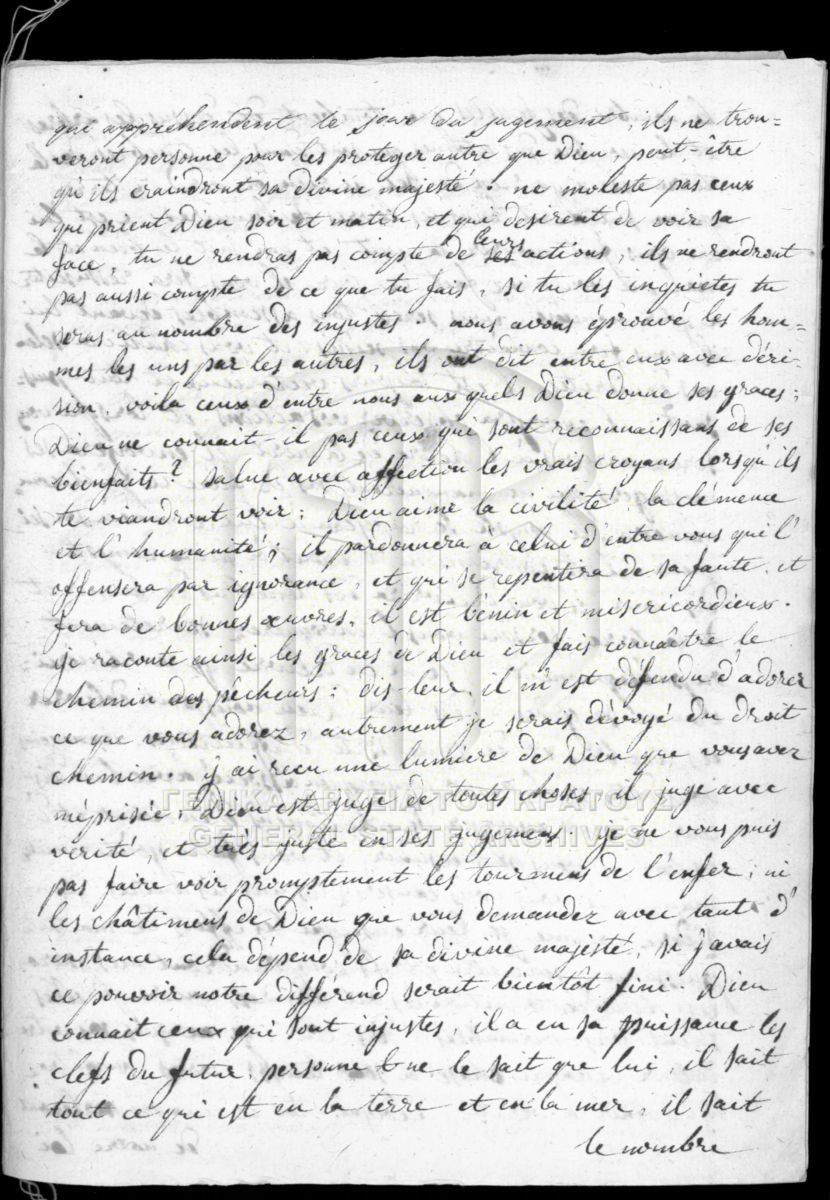 qui appréhendent le jour du jugement, ils ne trou=
veront personne pour les proteger autre que Dieu, peut-être
qu'ils craindront sa divine majesté. ne moleste pas ceux
qui prient Dieu soir et matin, et qui desirent de voir sa
face, tu ne rendras pas compte de leurs actions, ils ne rendront
pas aussi compte de ce que tu fais, si tu les inquietes tu
seras au nombre des injustes. nous avons éprouvé les hom=
mes les uns par les autres, ils ont dit entre eux avec déri=
sion, voila ceux d'entre nous aux quels Dieu donne ses graces;
Dieu ne connait-il pas ceux qui sont reconnaissans de ses
bienfaits? salue avec affection les vrais croyans lorsqu'ils
te viandront voir; Dieu aime la civilité, la clémence
et l'humanité; il pardonnera a celui d'entre vous qui l'
offensera par ignorance, et qui se repentira de sa faute, et
fera de bonnes œuvres, il est bénin et misericordieux.
je raconte ainsi les graces de Dieu et fais connaître le
chemin des pêcheurs; dis-leur, il m'est défendu d'adorer
ce que vous adorez, autrement je serais dévoyé du droit
chemin. j'ai recu une lumiere de Dieu que vous avez
méprisée, Dieu est juge de toutes choses, il juge avec
verité, et tres juste en ses jugemens. je ne vous puis
pas faire voir promptement les tourmens de l'enfer, ni
les châtimens de Dieu que vous demandez avec tant d'
instance, cela dépend de sa divine majésté, si j'avais
ce pouvoir notre différend serait bientôt fini. Dieu
connait ceux qui sont injustes, il a en sa puissance les
clefs du futur, personne ne le sait que lui, il sait
tout ce qui est en la terre et en la mer, il sait
le nombre
ΓΕΝΙΚΑ ΑΡΧΕΙΑ ΤΟΥ ΚΡΑΤΟΥΣ
GENERAL STATE ARCHIVES